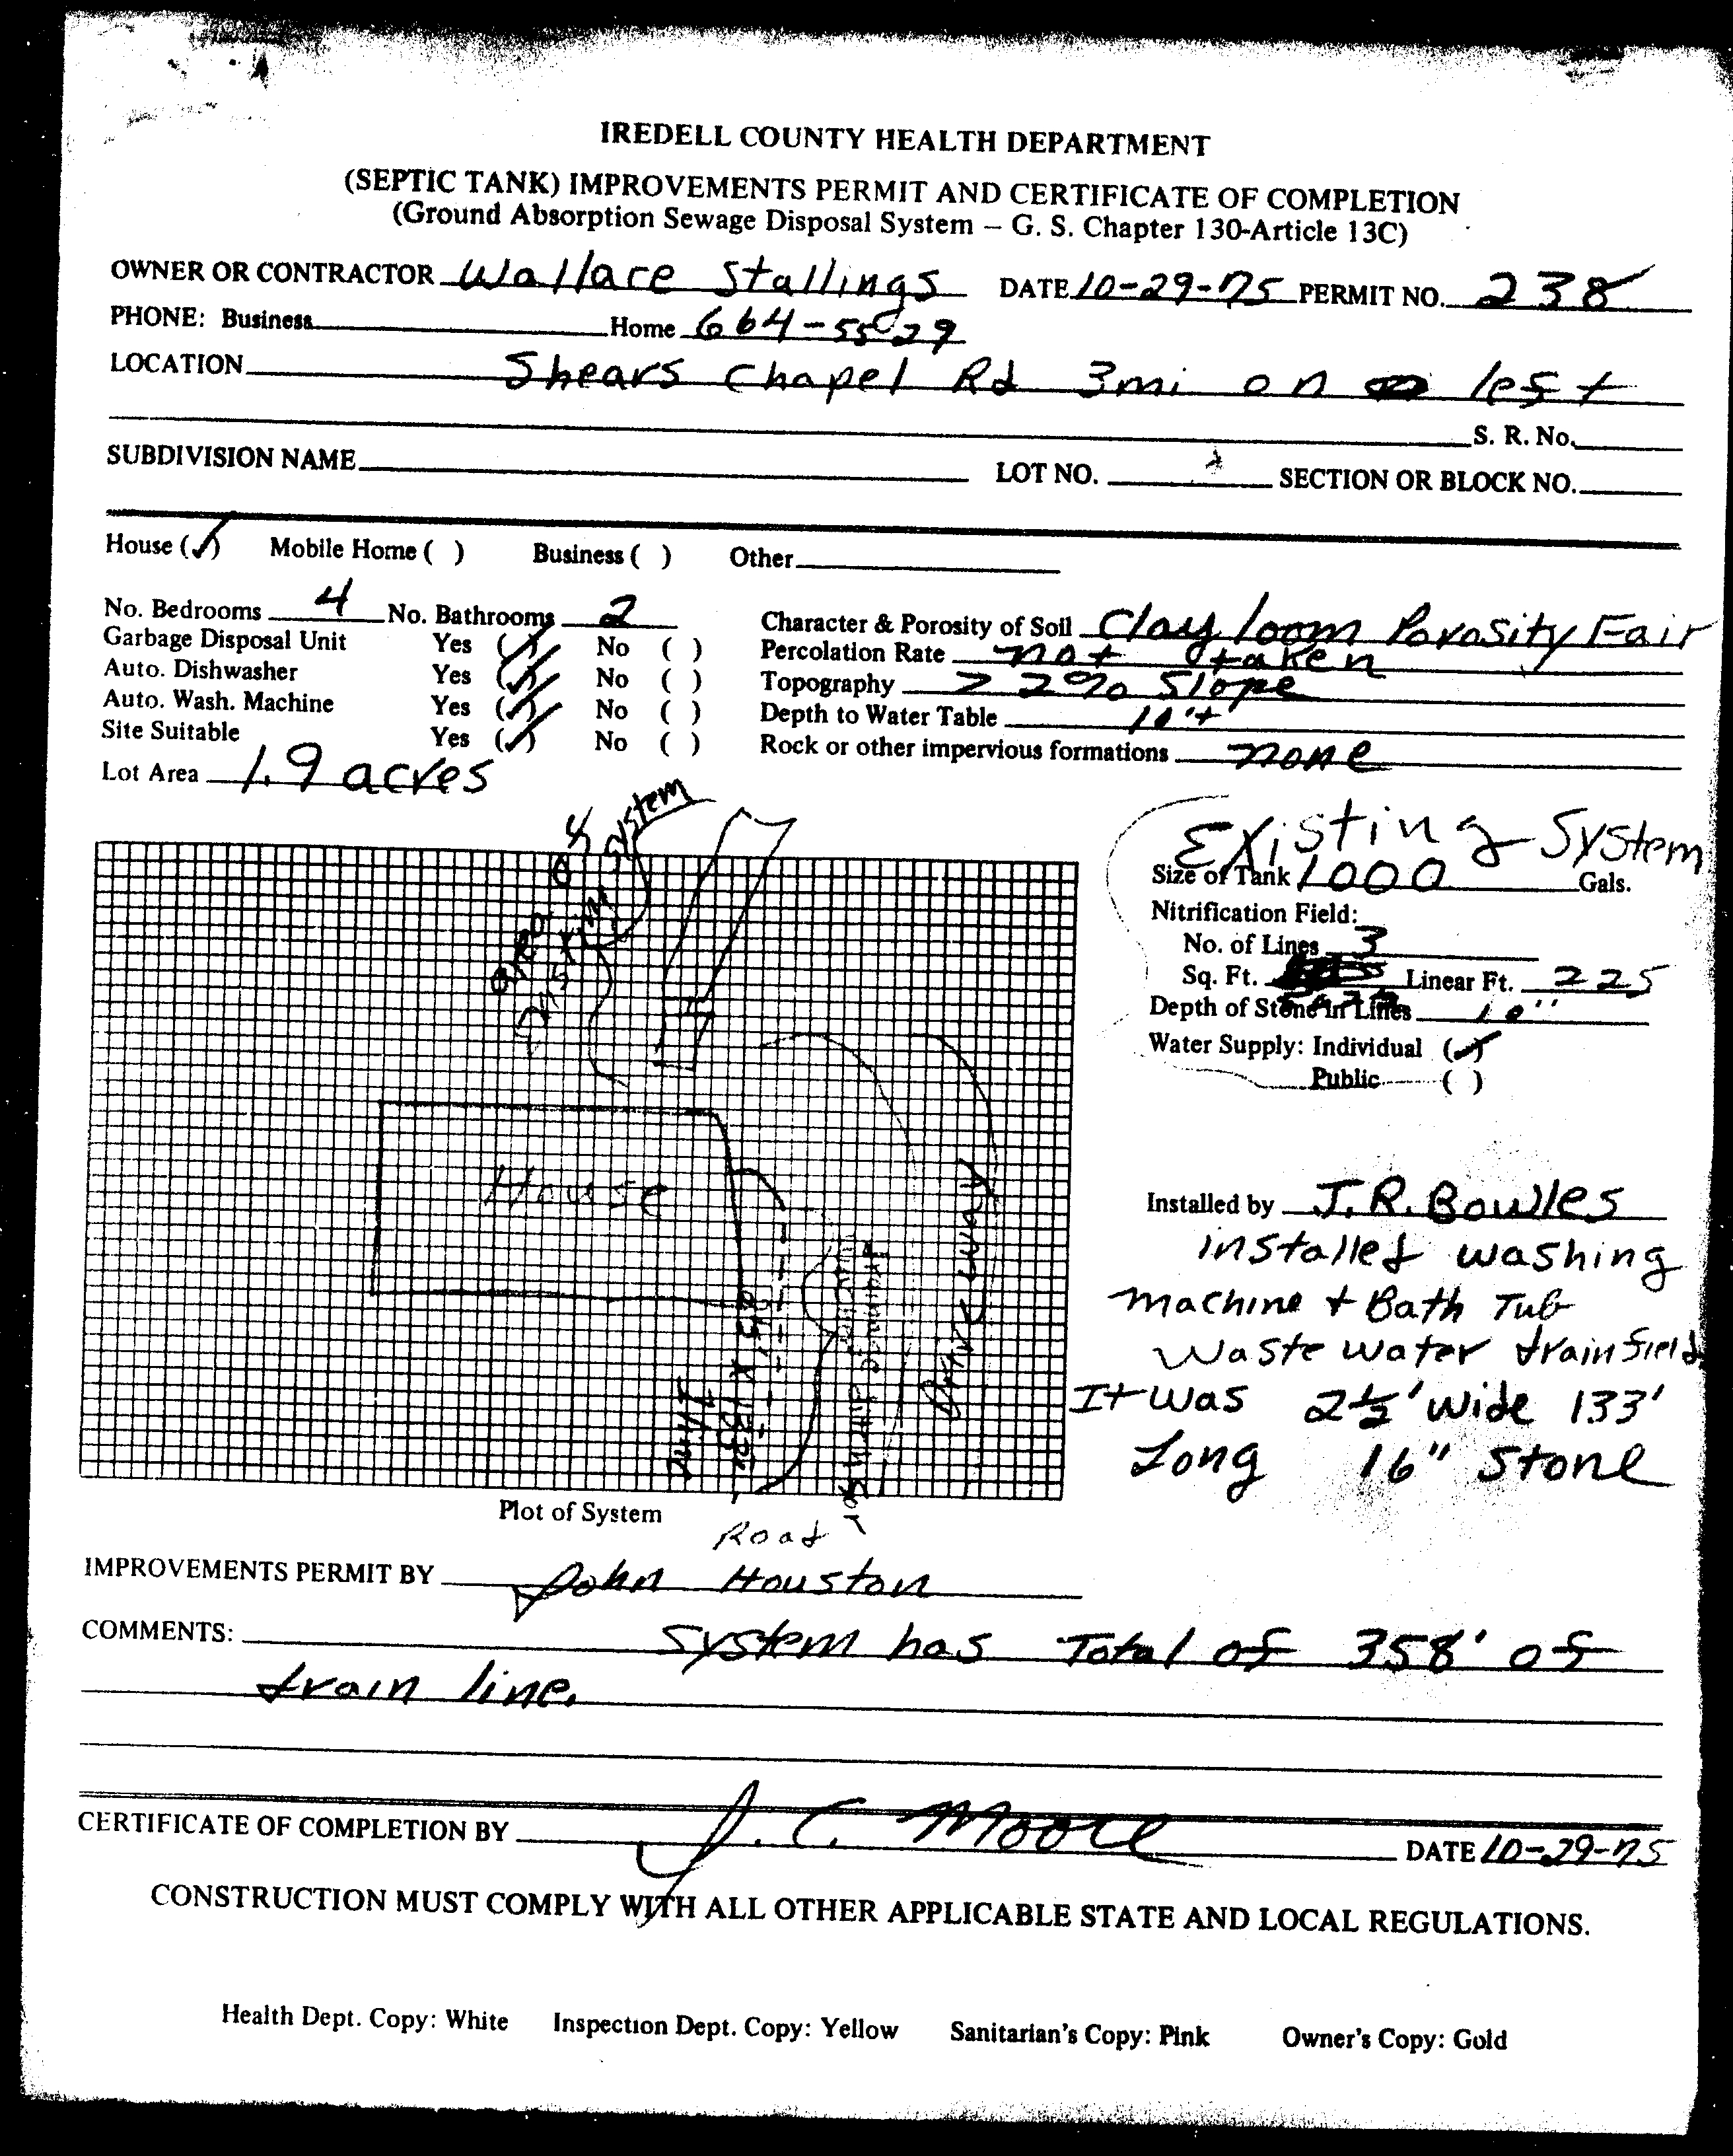 IREDELL COUNTY HEALTH DEPARTMENT
(SEPTIC TANK) IMPROVEMENTS PERMIT AND CERTIFICATE OF COMPLETION
(Ground Absorption Sewage Disposal System – G. S. Chapter 130-Article 13C)
OWNER OR CONTRACTOR Wallace Stallings DATE 10-29-75 PERMIT NO. 238
PHONE: Business Home 664-5529
LOCATION Shears Chapel Rd 3mi on left
S. R. No.
SUBDIVISION NAME LOT NO. SECTION OR BLOCK NO.
House (✓) Mobile Home ( ) Business ( ) Other
No. Bedrooms 4 No. Bathrooms 2 Character & Porosity of Soil Clay loom Porosity Fair
Garbage Disposal Unit Yes (✓) No ( ) Percolation Rate not taken
Auto. Dishwasher Yes (✓) No ( ) Topography > 2% Slope
Auto. Wash. Machine Yes (✓) No ( ) Depth to Water Table 10'+
Site Suitable Yes (✓) No ( ) Rock or other impervious formations none
Lot Area 1.9 acres
Area of
Existing System
Existing System
Size of Tank 1000 Gals.
Nitrification Field:
No. of Lines 3
Sq. Ft. Linear Ft. 225
Depth of Stone in Lines 10"
Water Supply: Individual (✓)
Public ( )
House
Drive Way
Drainage Ditch
Line
Installed by J.R. Bowles
installed washing
machine + Bath Tub
Waste water drainfield
It was 2½' wide 133'
Long 16" Stone
Plot of System
Road
IMPROVEMENTS PERMIT BY John Houston
COMMENTS: System has Total of 358' of
drain line.
CERTIFICATE OF COMPLETION BY J. C. Moore DATE 10-29-75
CONSTRUCTION MUST COMPLY WITH ALL OTHER APPLICABLE STATE AND LOCAL REGULATIONS.
Health Dept. Copy: White Inspection Dept. Copy: Yellow Sanitarian's Copy: Pink Owner's Copy: Gold